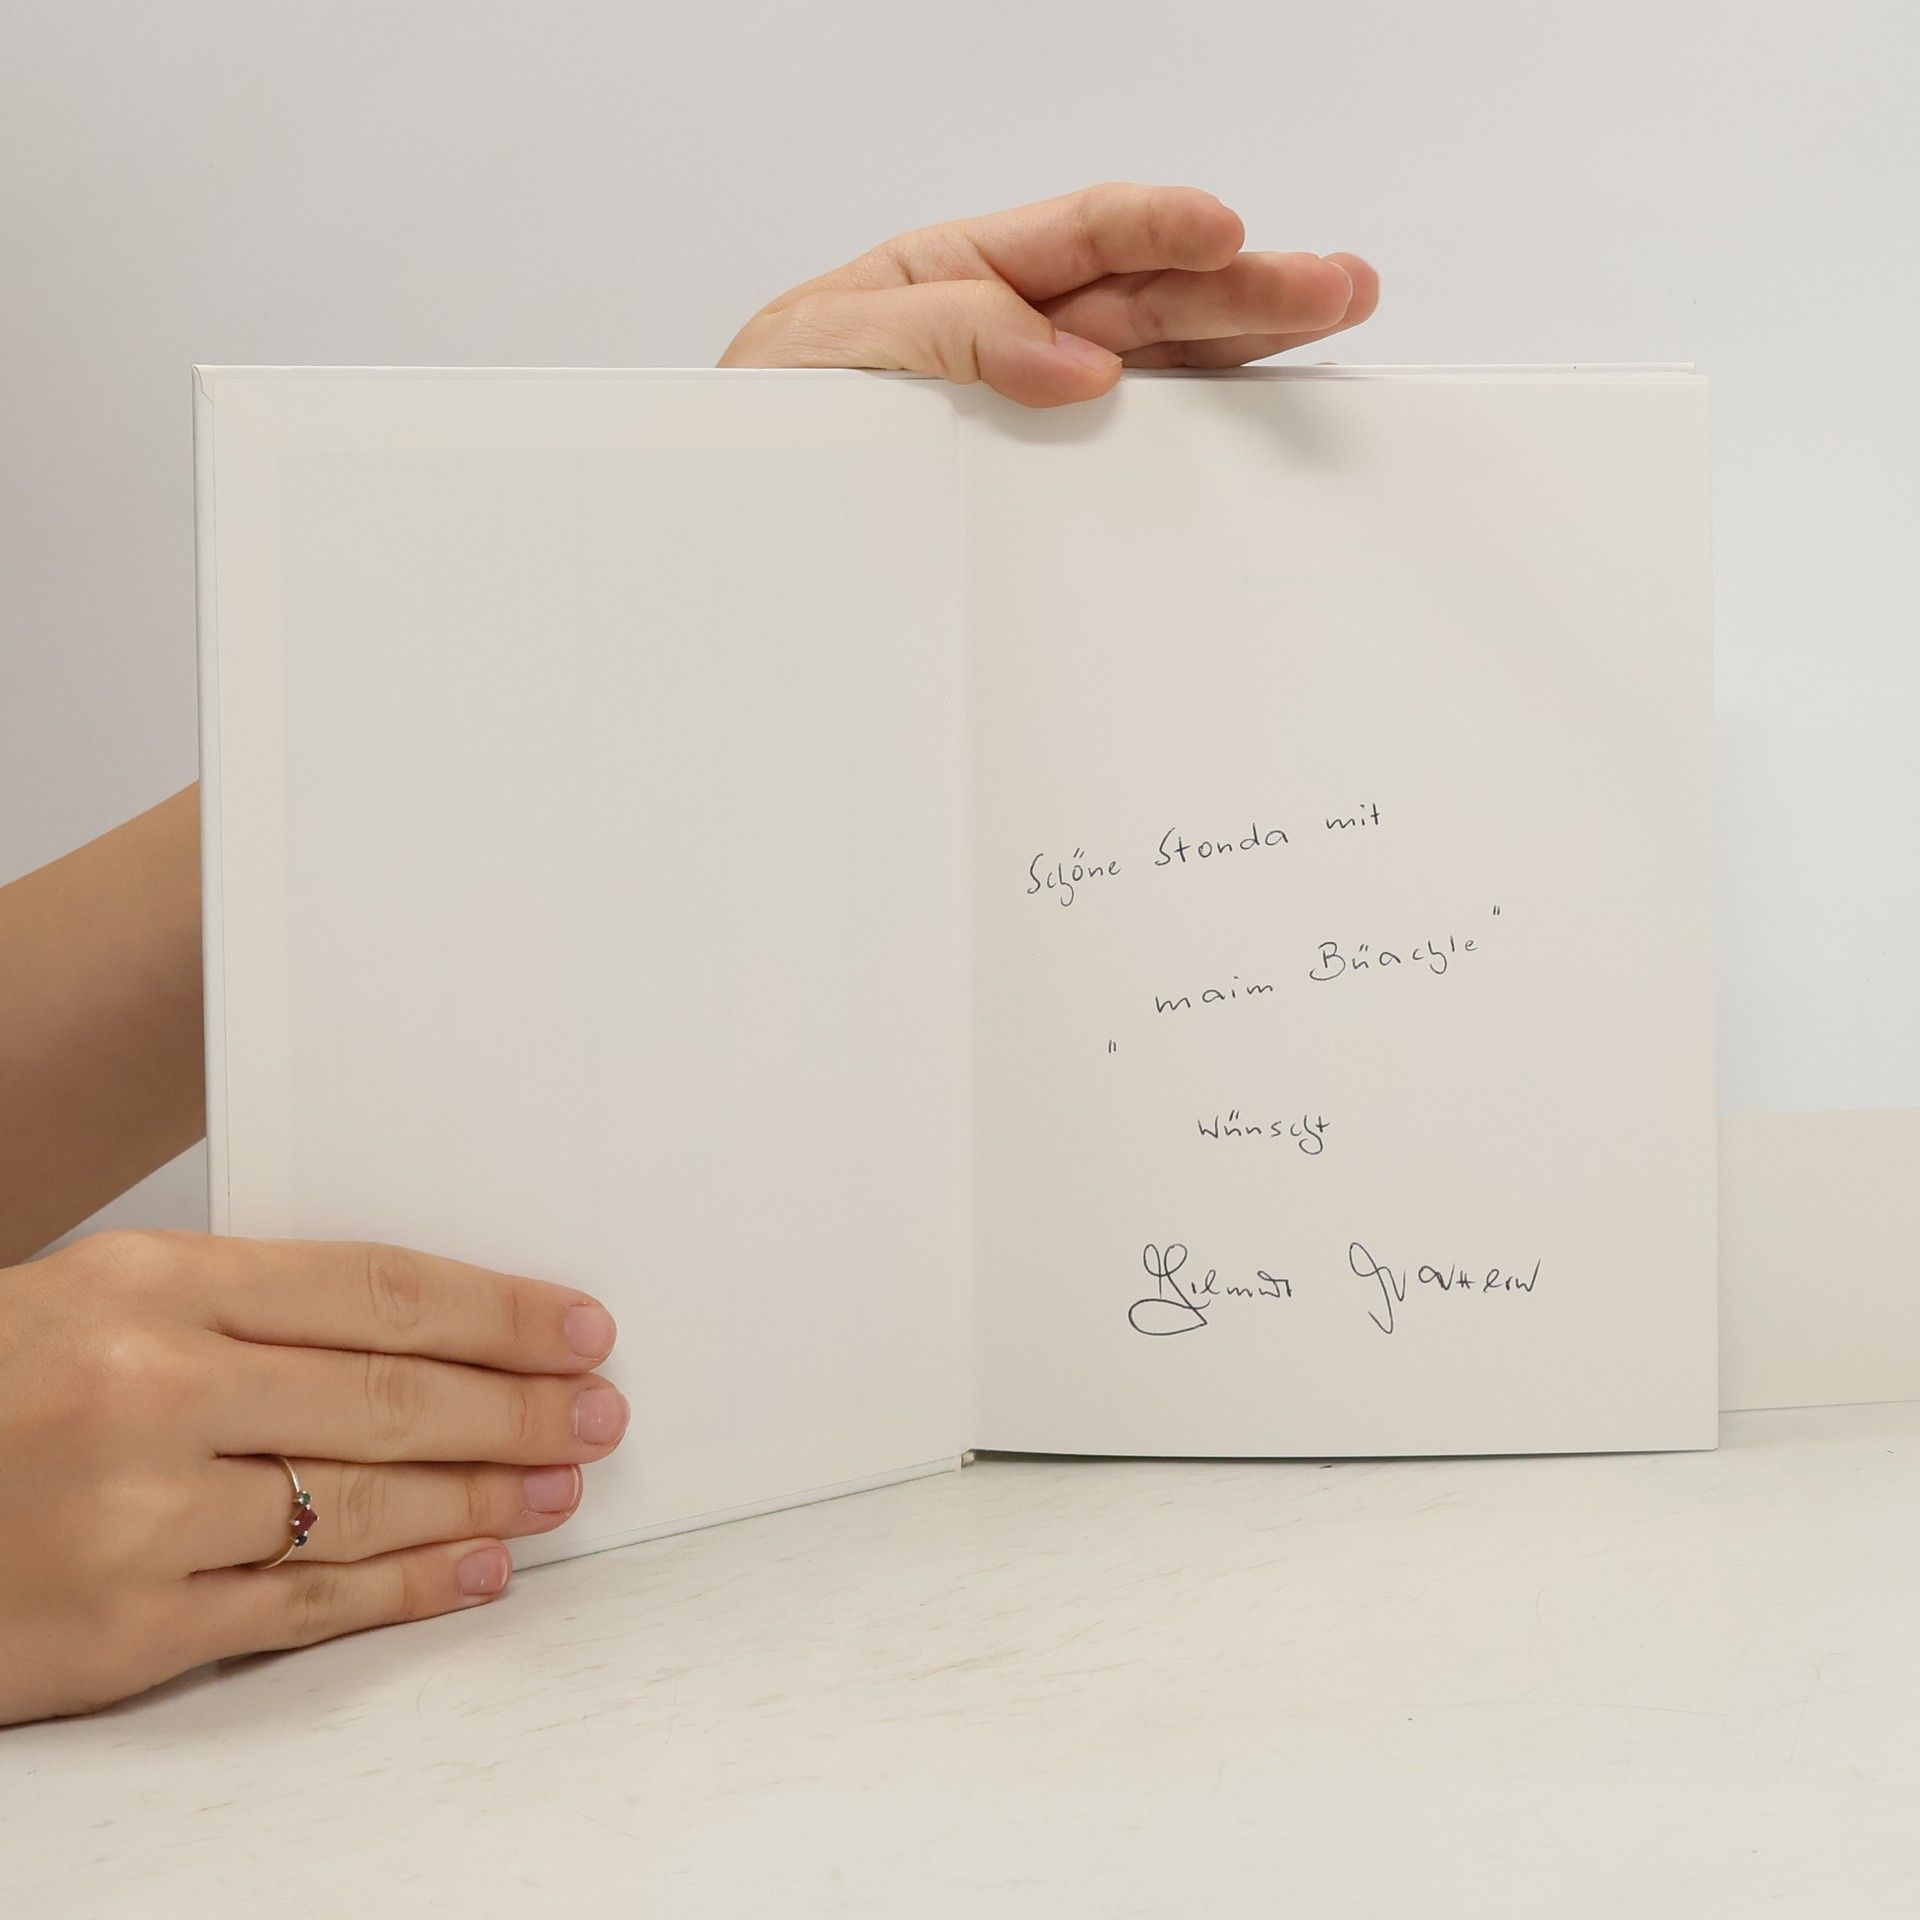 Schöne Stonda mit
„maim Büachle"
wünscht
Helmut